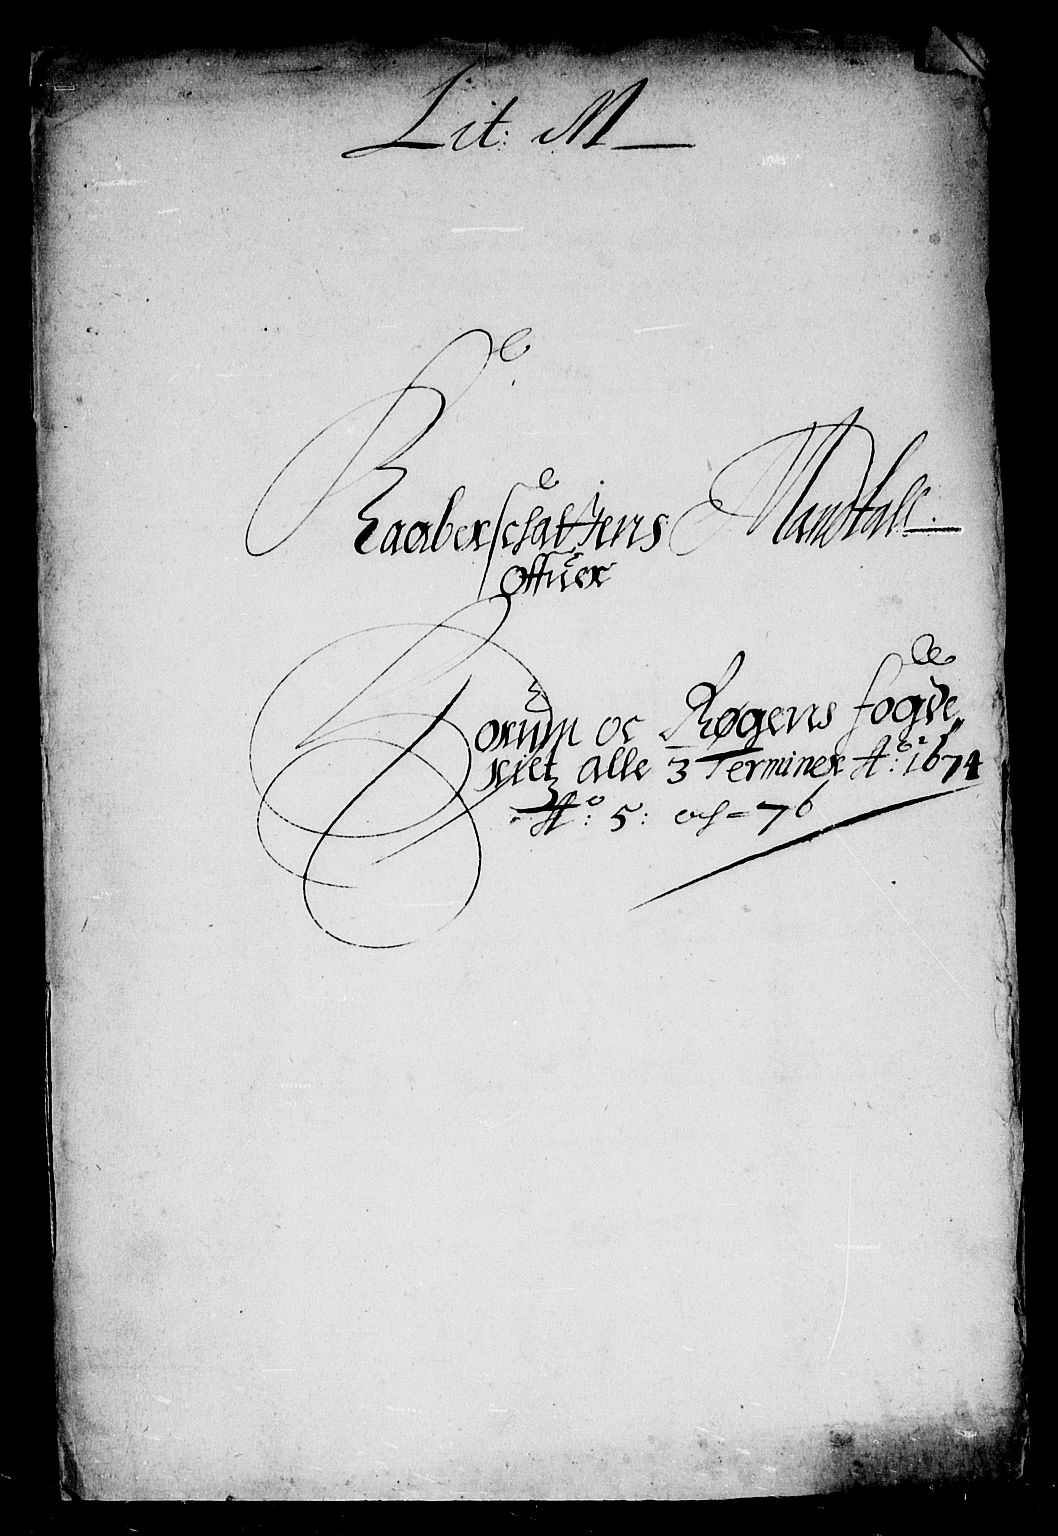 Lit: M
Kaaberschattens Mandtall.
offuer
Hurum oc Røgens fogde,,
riet alle 3 Terminer Aº: 1674
Aº: 5: och = 76